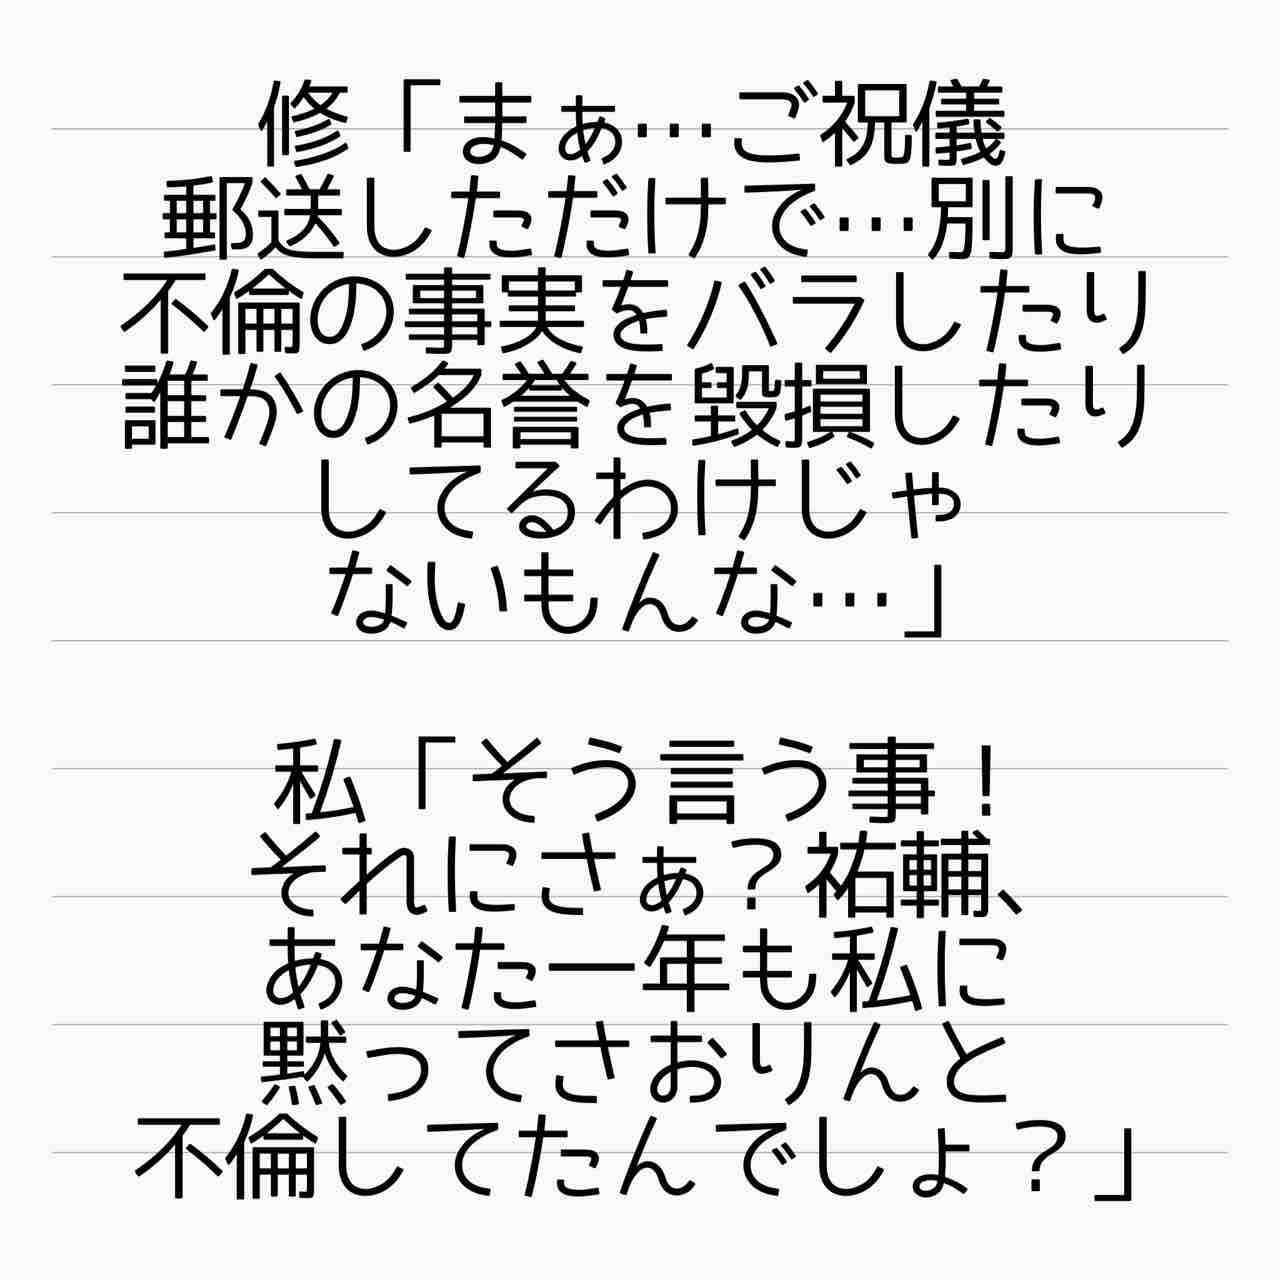 修「まぁ…ご祝儀
郵送しただけで…別に
不倫の事実をバラしたり
誰かの名誉を毀損したり
してるわけじゃ
ないもんな…」
私「そう言う事！
それにさぁ？祐輔、
あなた一年も私に
黙ってさおりんと
不倫してたんでしょ？」